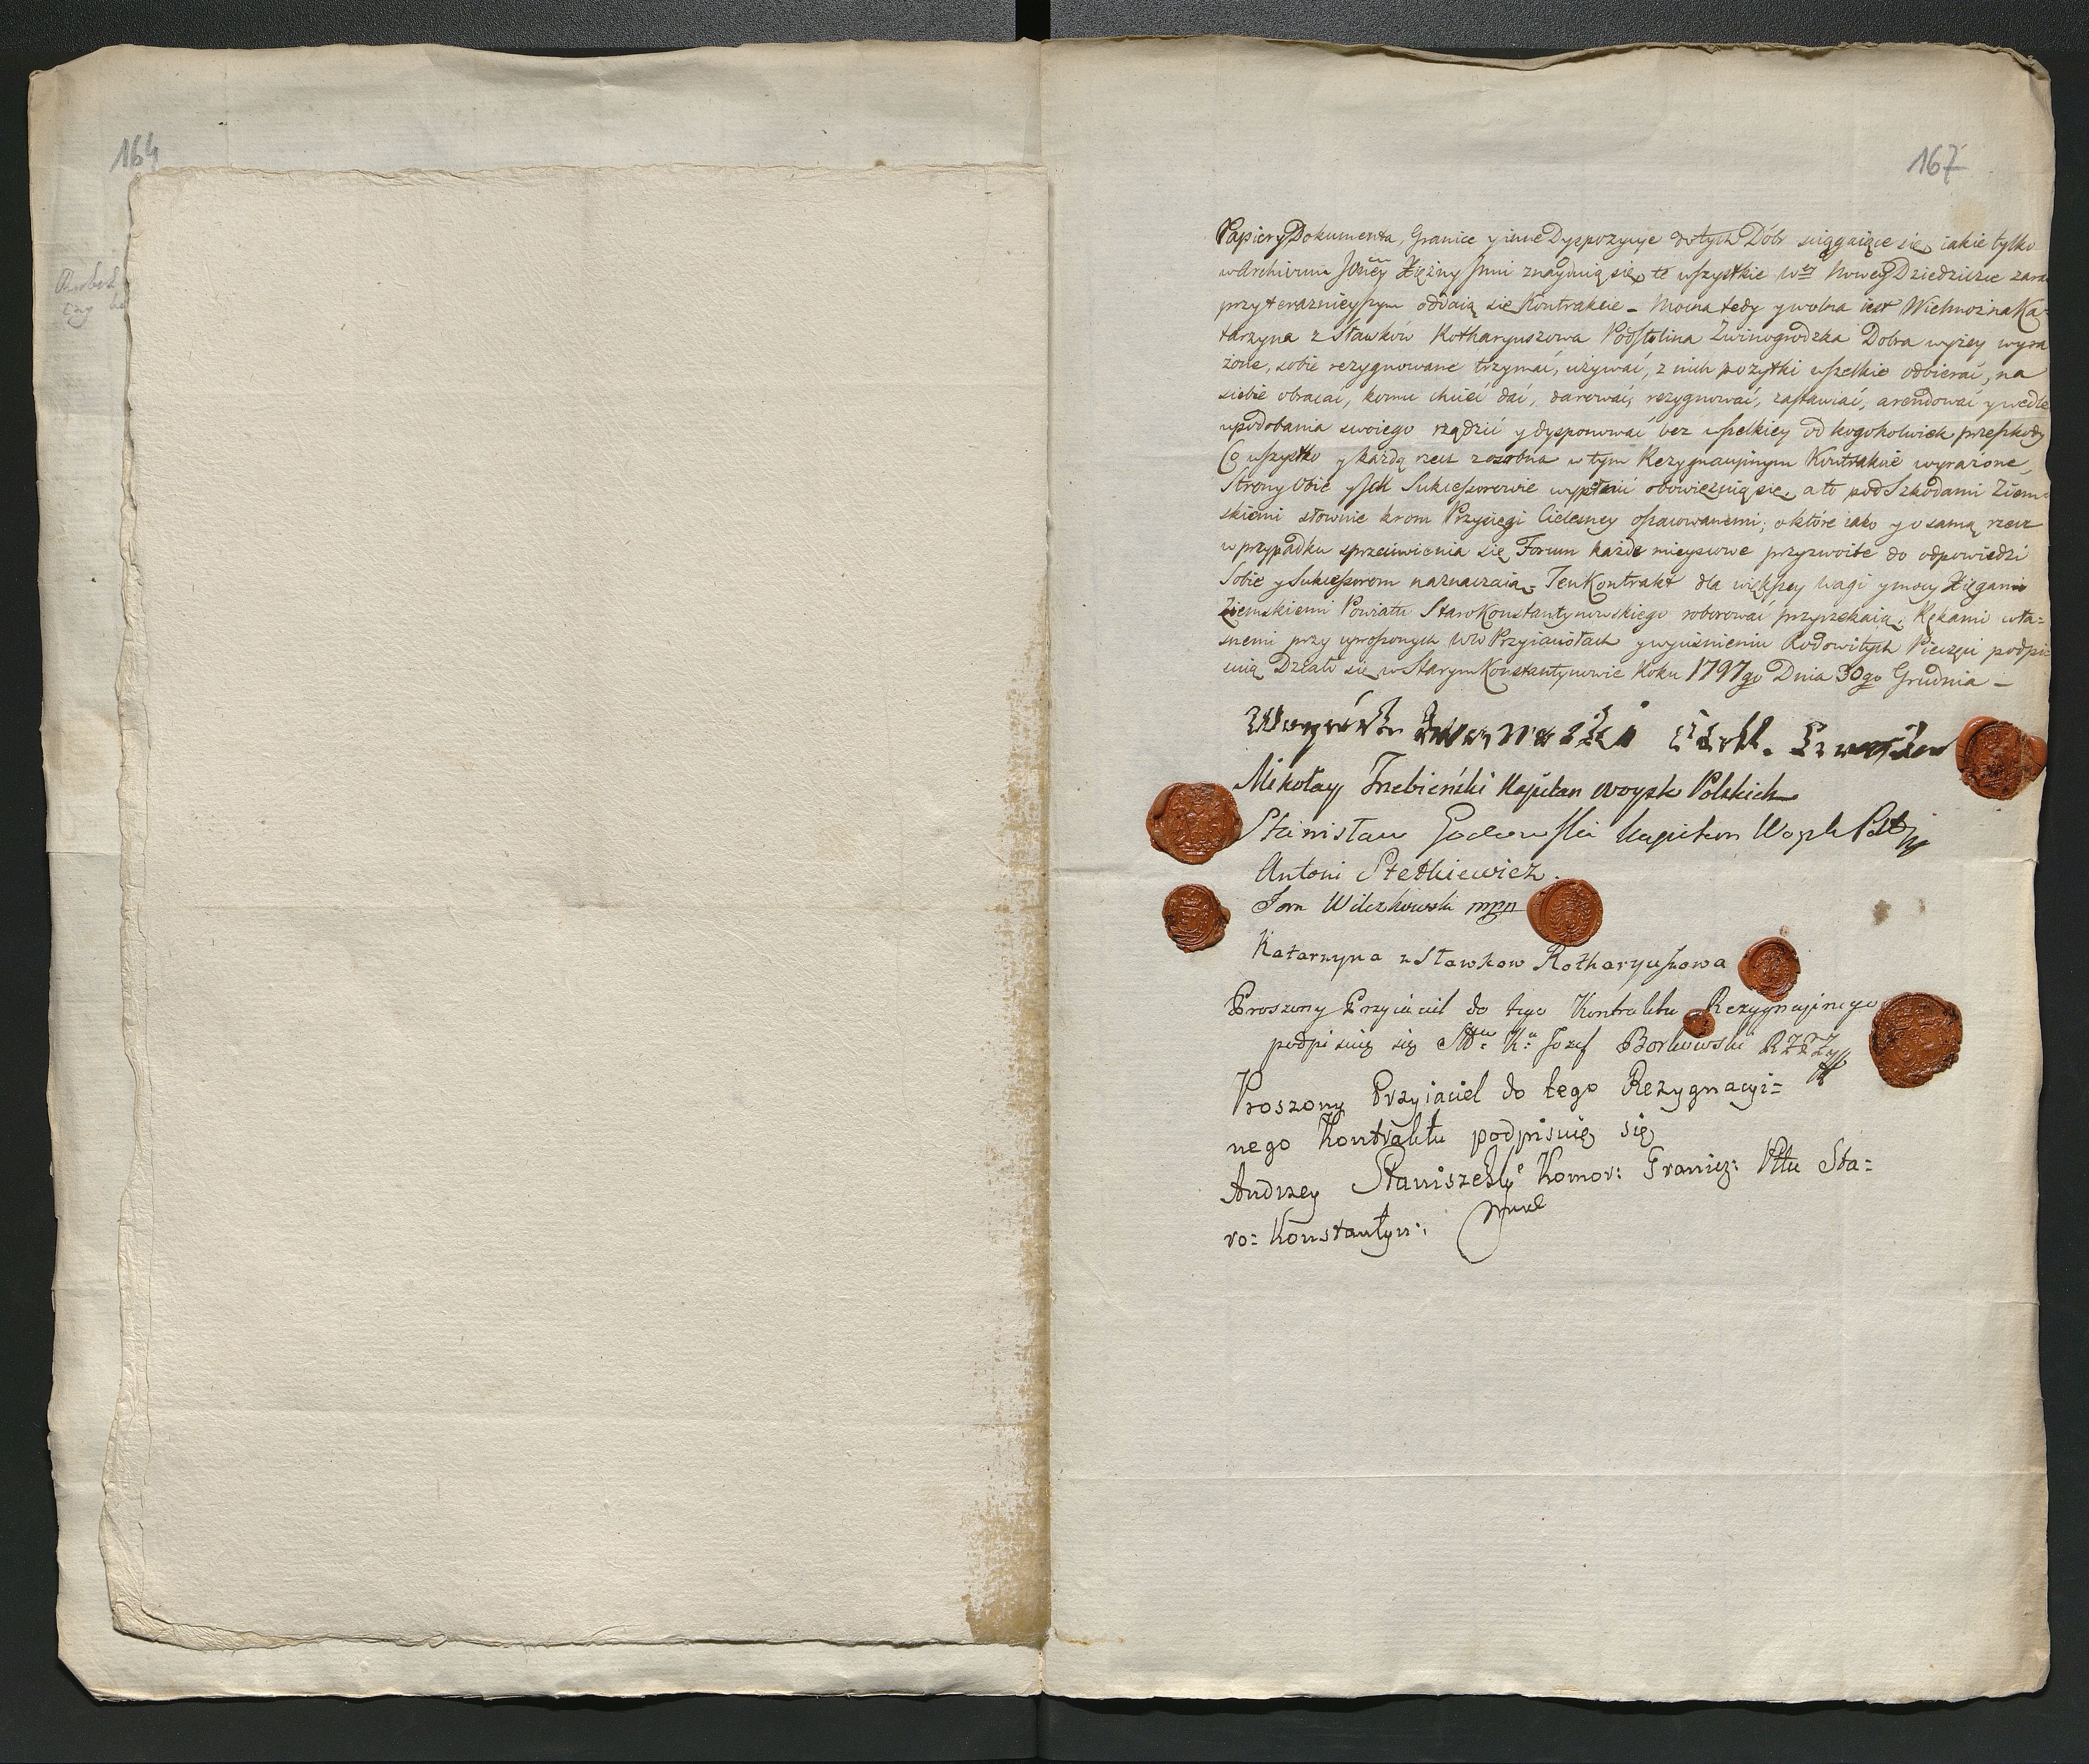 164
167
Papiery Dokumenta, Granice y inne Dyspozycye do tych Dóbr sciągaiące się, iakie tylko
w Archivum Xiężny Jmci znayduią się, te wszystkie Nowey Dziedziczce zara
przy teraznieyszym oddaią się Kontrakcie – Mocna tedy y wolna iest Wielmożna Ka-
tarzyna z Sławków Rotharyuszowa Podstolina Zwinogrodzka Dobra wyżey wyra
żone, sobie rezygnowane trzymać, używać, z nich pożytki wszelkie odbierać, na
siebie obracać, komu chcieć dać, darować, rezygnować, zastawiać, arendować y wedle
upodobania swoiego rządzić y dysponować bez wszelkiey od kogokolwiek przeszkody
Co wszystko y każdą rzecz zosobna w tym Rezygnacyinym Kontrakcie wyrażone,
Strony Obie y Ich Sukcessorowie wypełnić obowiezuią się, a to pod Szkodami Ziem-
skiemi słownie krom Przysięgi Cielesney oszacowanemi; o które iako y o samą rzecz
w przypadku sprzeciwienia się Forum każde mieyscowe przyzwoite do odpowiedzi
Sobie y Sukcessorom naznaczaią – Ten Kontrakt dla większey Wagi y mocy Xięgami
Ziemskiemi Powiatu Staro Konstantynowskiego roborować przyrzekaią, Rękami wła=
snemi przy uproszonych WW Przyiaciołach y wyciśnieniu Rodowitych Pieczęci podpi-
suią Działo się w Starym Konstantynowie Roku 1797go Dnia 30go Grudnia –
Mikołay Trzebieński Kapitan woysk Polskich
Stanisław Kapitan Woysk
Antoni Stetkiewicz.
Jan Wilczkowski mpp
Katarzyna z Sławkow Rotharyuszowa
Proszony Przyiaciel do tego Kontraktu Rezygnacyinego
podpisuię się Józef Borkowski
Proszony Przyiaciel do tego Rezygnacyi=
nego Kontraktu podpisuię się
Andrzey Staniszeski Komor: Granicz: Pttu Sta=
ro= Konstantyn: